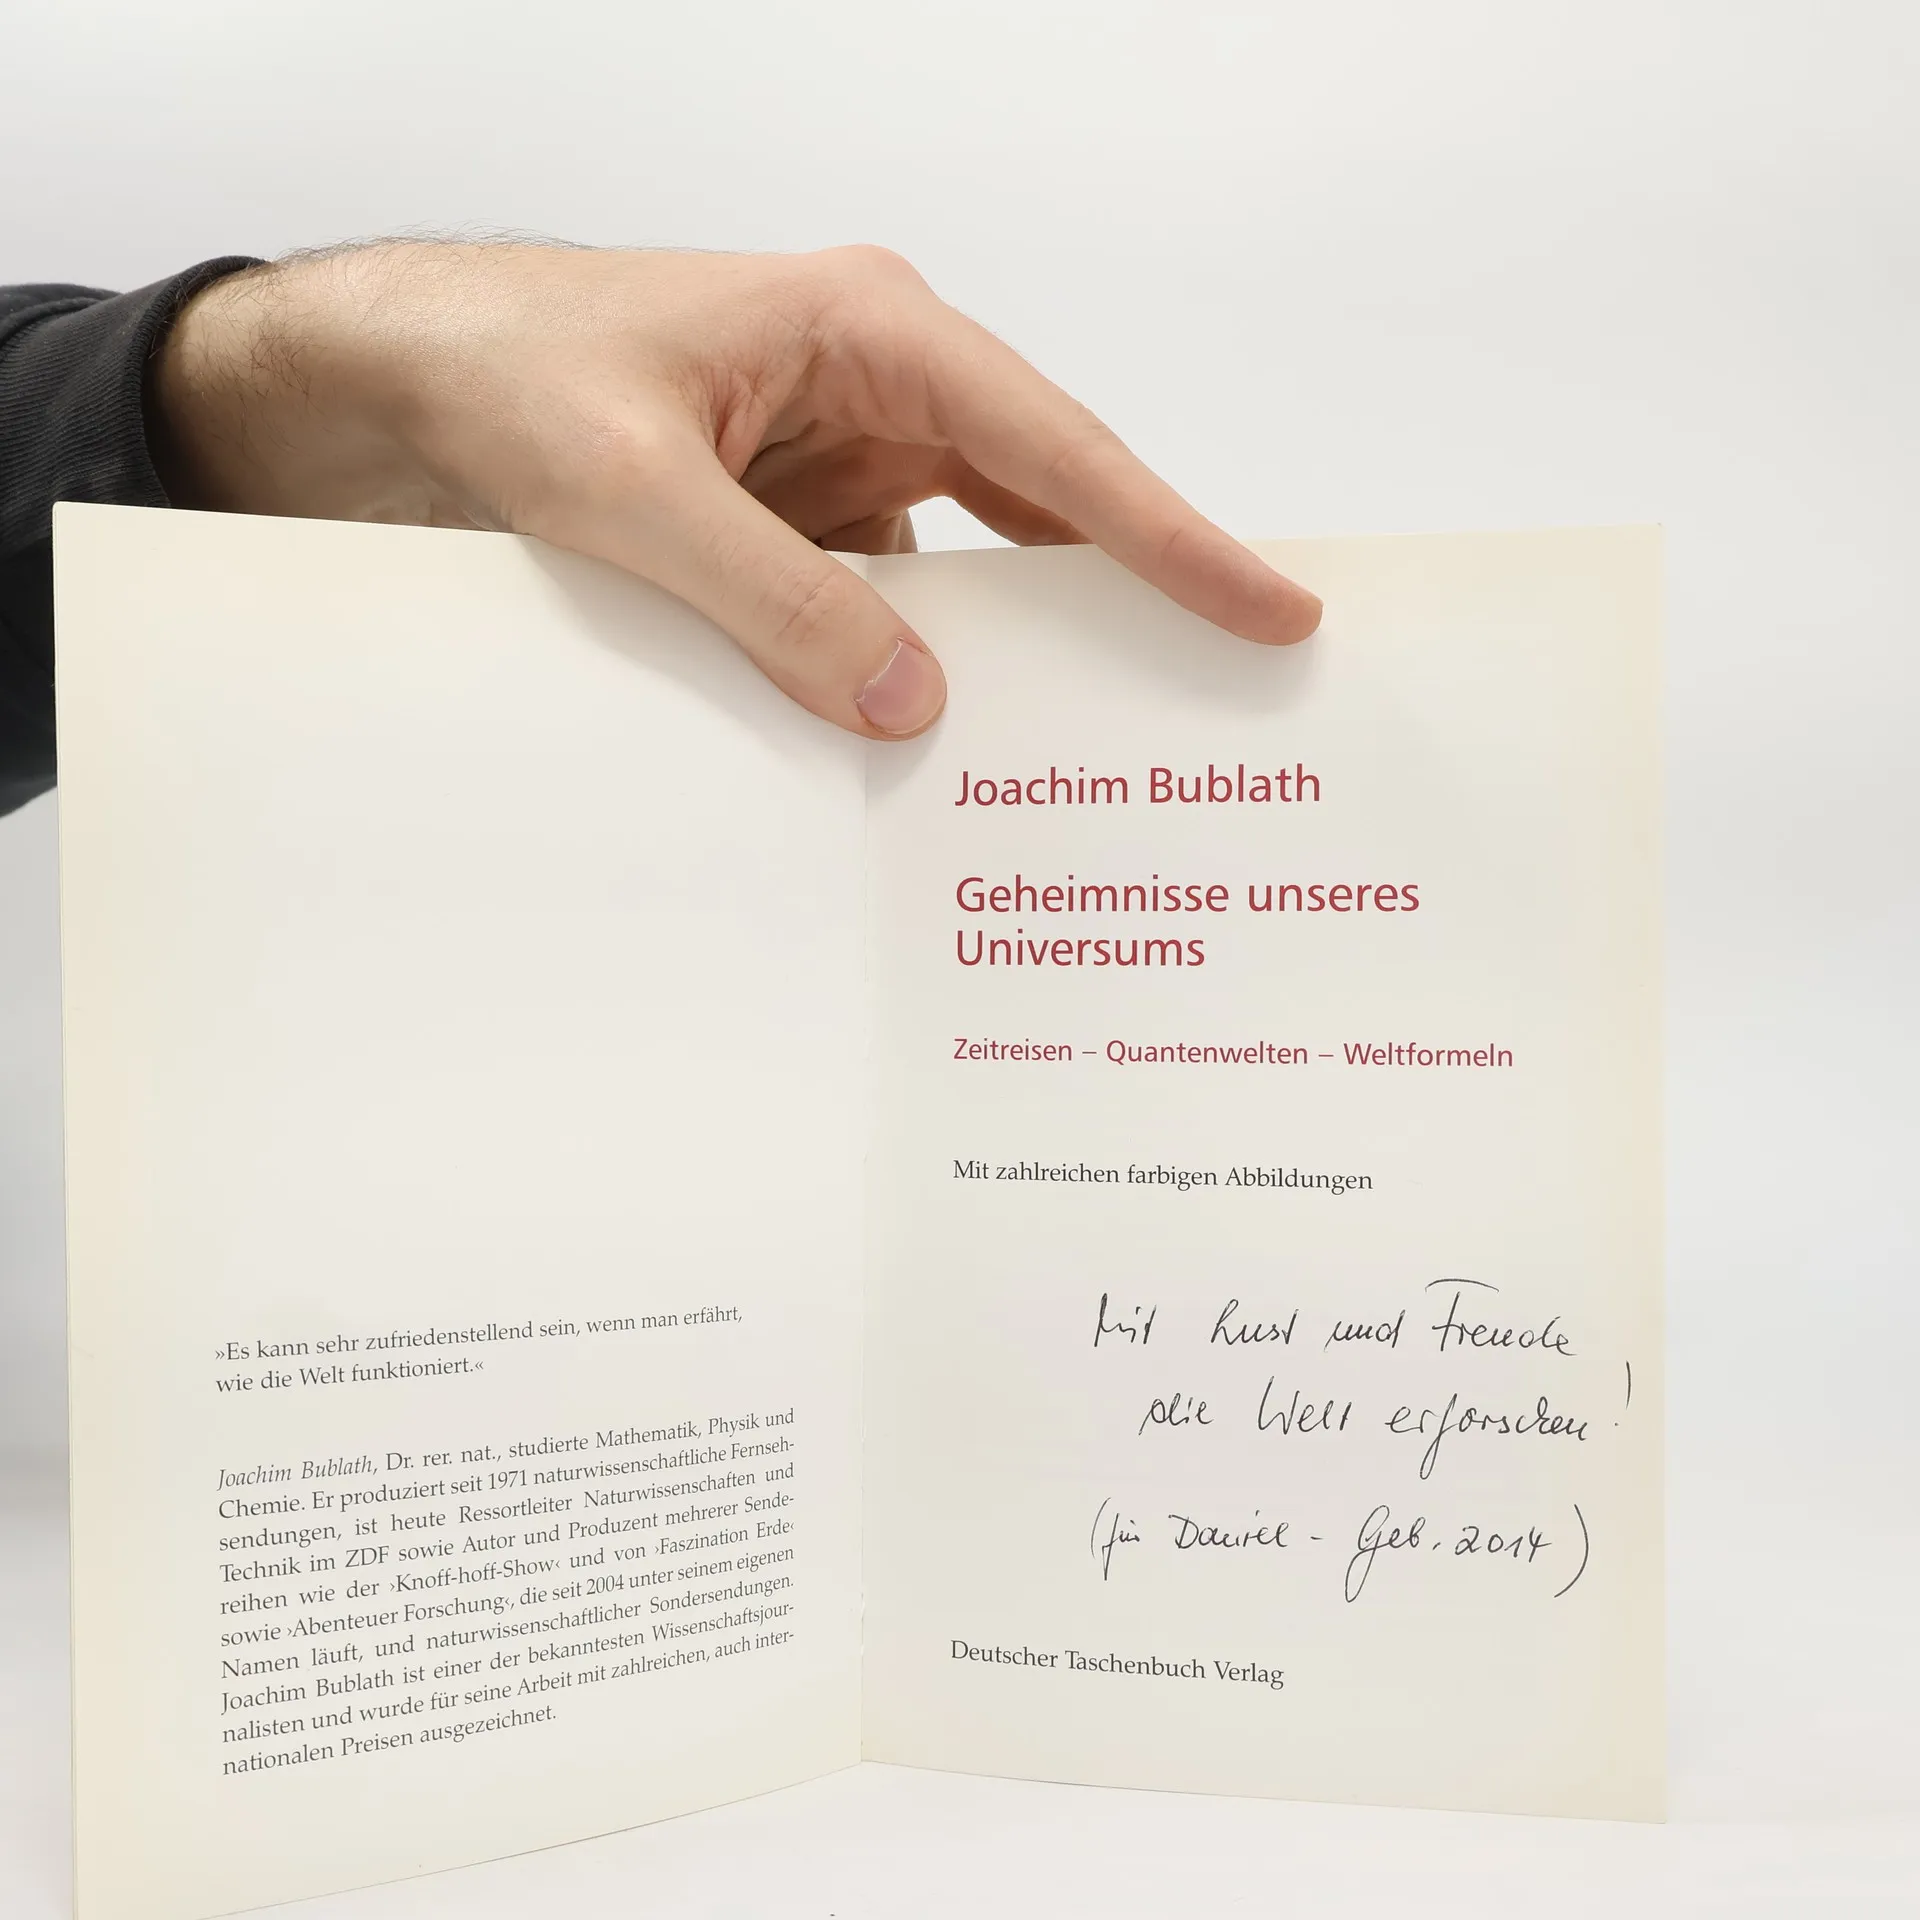 »Es kann sehr zufriedenstellend sein, wenn man erfährt,
wie die Welt funktioniert.«
Joachim Bublath, Dr. rer. nat., studierte Mathematik, Physik und
Chemie. Er produziert seit 1971 naturwissenschaftliche Fernseh-
sendungen, ist heute Ressortleiter Naturwissenschaften und
Technik im ZDF sowie Autor und Produzent mehrerer Sende-
reihen wie der ›Knoff-hoff-Show‹ und von ›Faszination Erde‹
sowie ›Abenteuer Forschung‹, die seit 2004 unter seinem eigenen
Namen läuft, und naturwissenschaftlicher Sondersendungen.
Joachim Bublath ist einer der bekanntesten Wissenschaftsjour-
nalisten und wurde für seine Arbeit mit zahlreichen, auch inter-
nationalen Preisen ausgezeichnet.
Joachim Bublath
Geheimnisse unseres
Universums
Zeitreisen – Quantenwelten – Weltformeln
Mit zahlreichen farbigen Abbildungen
Mit Lust und Freude
die Welt erforschen!
(für Daniel - Geb. 2014)
Deutscher Taschenbuch Verlag